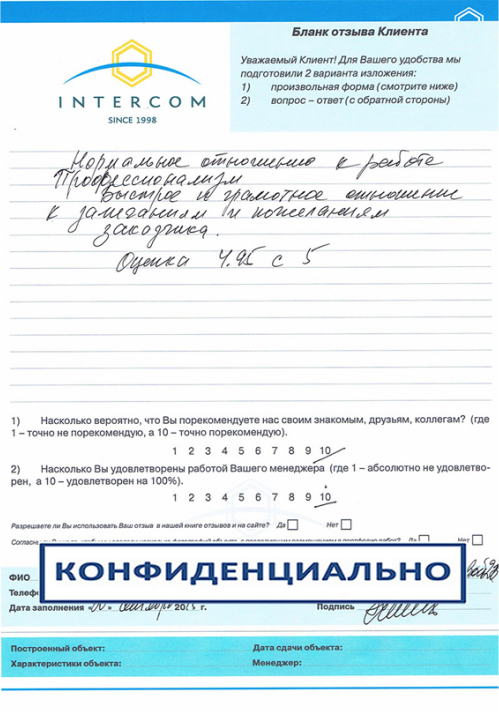 Бланк отзыва Клиента
Уважаемый Клиент! Для Вашего удобства мы
подготовили 2 варианта изложения:
1) произвольная форма (смотрите ниже)
2) вопрос – ответ (с обратной стороны)
INTERCOM
SINCE 1998
Нормальное отношение к работе
Профессионализм
Быстрое и грамотное отношение
к замечаниям и пожеланиям
заказчика.
Оценка 4.95 с 5
1) Насколько вероятно, что Вы порекомендуете нас своим знакомым, друзьям, коллегам? (где
1 – точно не порекомендую, а 10 – точно порекомендую).
1 2 3 4 5 6 7 8 9 10
2) Насколько Вы удовлетворены работой Вашего менеджера (где 1 – абсолютно не удовлетво-
рен, а 10 – удовлетворен на 100%).
1 2 3 4 5 6 7 8 9 10
Разрешаете ли Вы использовать Ваш отзыв в нашей книге отзывов и на сайте? Да Нет
Да Нет
КОНФИДЕНЦИАЛЬНО
ФИО
Телефо
Дата заполнения г. Подпись
Построенный объект: Дата сдачи объекта:
Характеристики объекта: Менеджер: